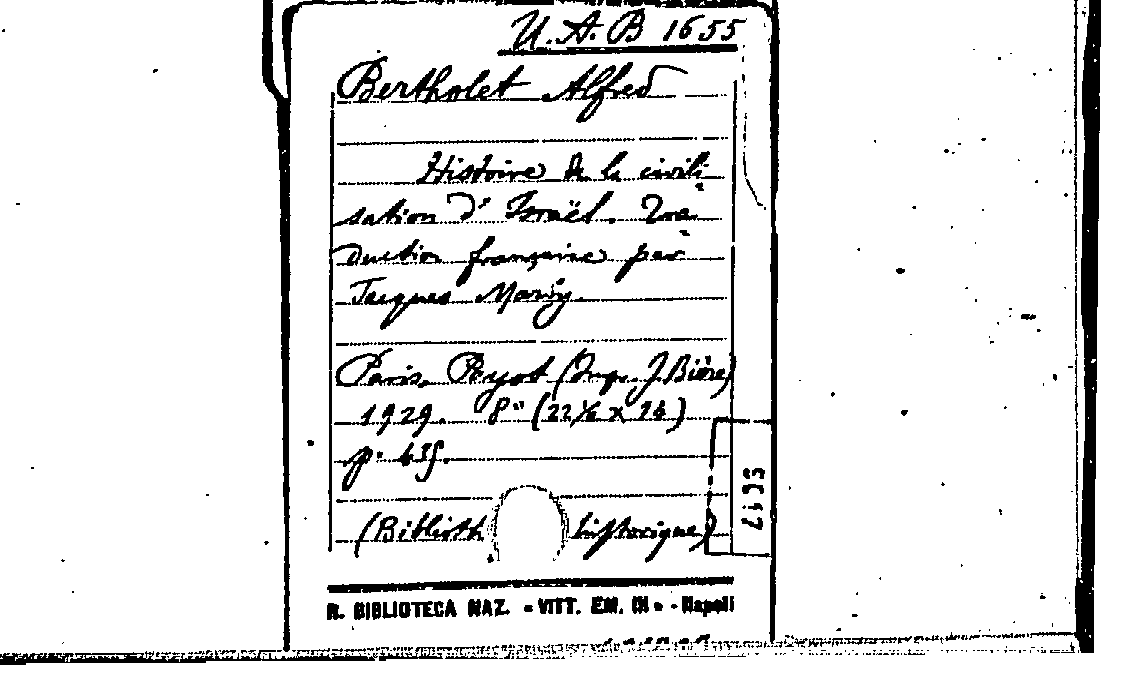 U. A. B 1655
Bertholet Alfred
Histoire de la civili-
sation d'Israël. Tra-
duction française par
Jacques Marty.
Paris, Payot (Imp. J. Bière)
1929. 8° (22½ x 14)
p. 435.
(Biblioth historique)
R. BIBLIOTECA NAZ. « VITT. EM. III » - Napoli